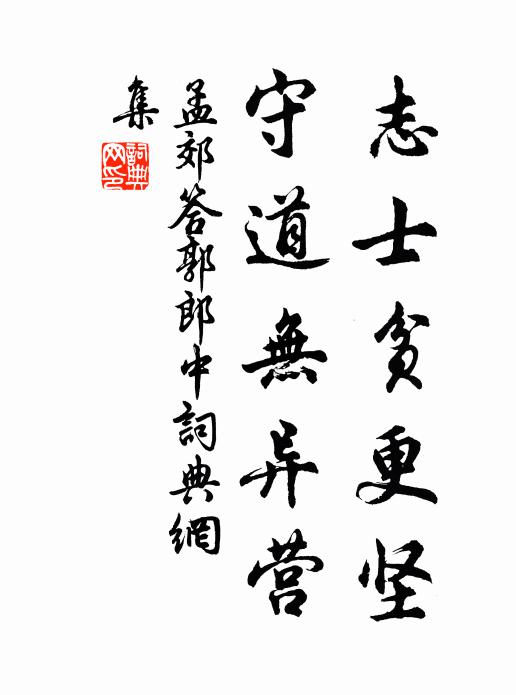 志士贫更坚
守道無异营
孟郊答郭郎中詞典網
集
詞典
网印